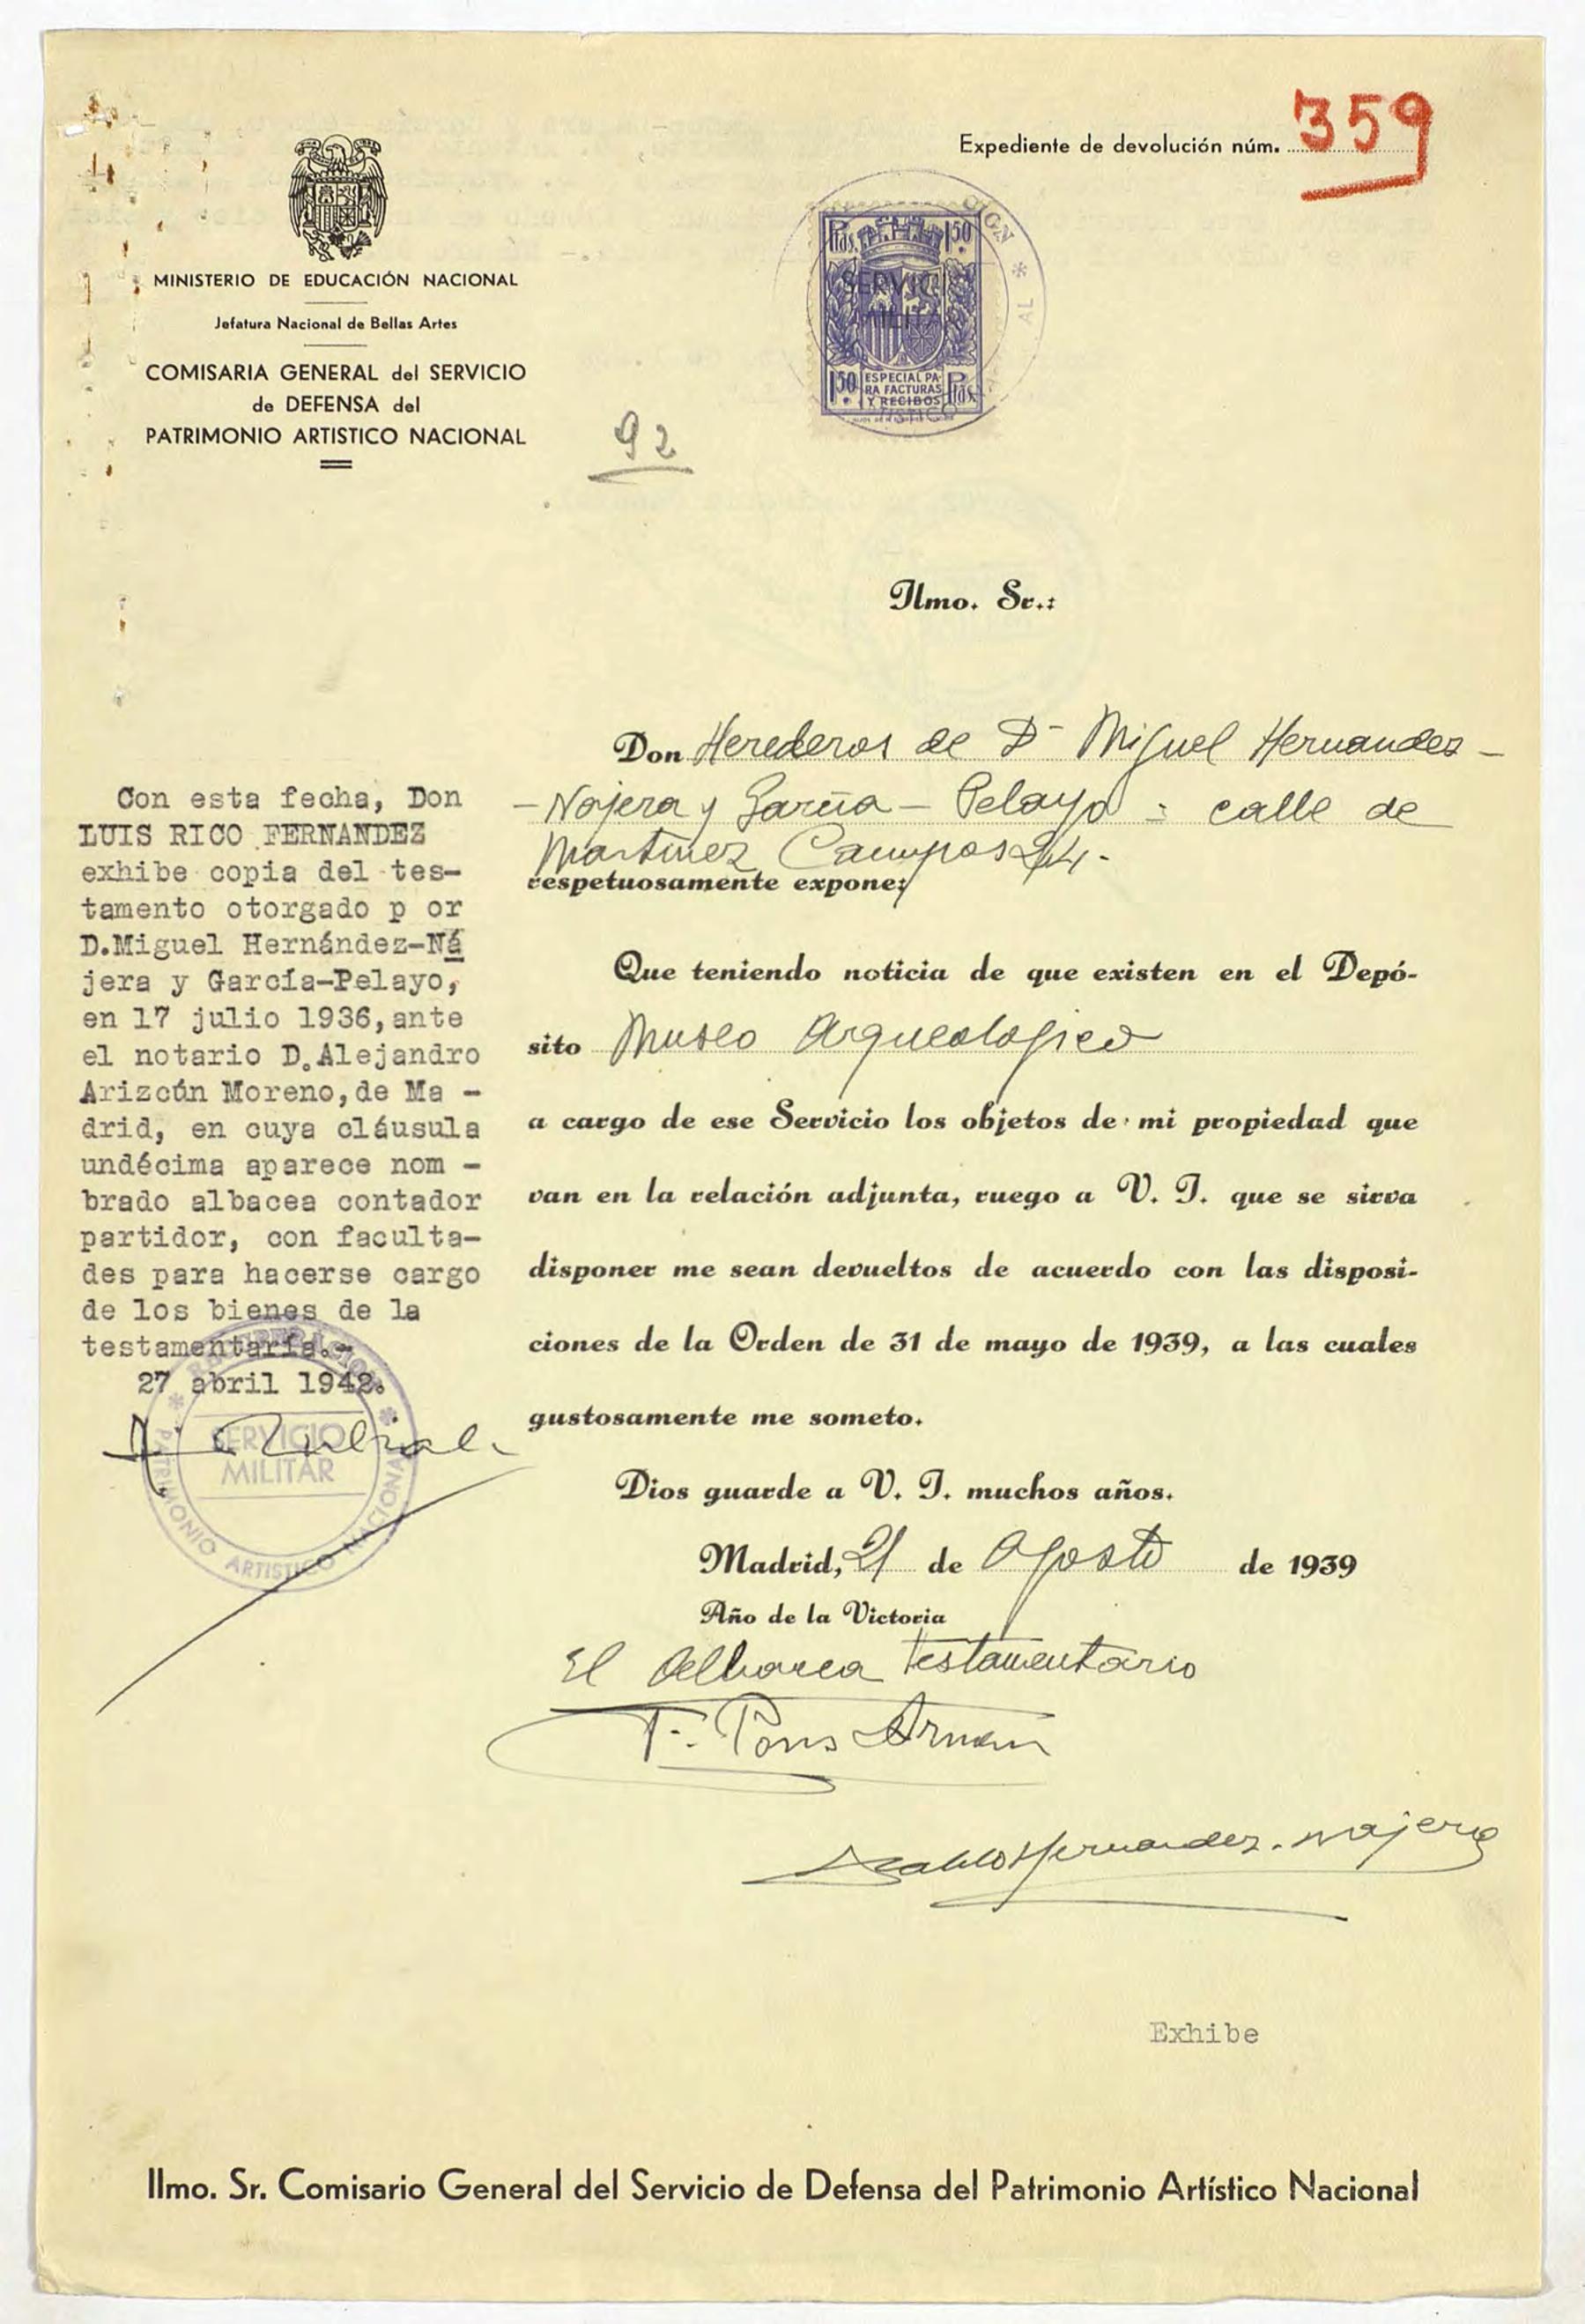 Expediente de devolución núm. 359
MINISTERIO DE EDUCACIÓN NACIONAL
Jefatura Nacional de Bellas Artes
COMISARIA GENERAL del SERVICIO
de DEFENSA del
PATRIMONIO ARTISTICO NACIONAL
Ptas. 1'50
SERVICI
MILITA
1'50 ESPECIAL PA-
RA FACTURAS
Y RECIBOS Ptas.
92
Ilmo. Sr.:
Don Herederos de Dn Miguel Hernandez -
- Najera y Garcia - Pelayo = calle de
Martinez Campos
respetuosamente expone:
Que teniendo noticia de que existen en el Depó-
sito Museo Arqueologico
a cargo de ese Servicio los objetos de mi propiedad que
van en la relación adjunta, ruego a V. I. que se sirva
disponer me sean devueltos de acuerdo con las disposi-
ciones de la Orden de 31 de mayo de 1939, a las cuales
gustosamente me someto.
Dios guarde a V. I. muchos años.
Madrid, 21 de Agosto de 1939
Año de la Victoria
El Albacea testamentario
T. Pons Arnau
Pablo Hernandez-Najera
Con esta fecha, Don
LUIS RICO FERNANDEZ
exhibe copia del tes-
tamento otorgado p or
D.Miguel Hernández-Ná
jera y García-Pelayo,
en 17 julio 1936,ante
el notario D.Alejandro
Arizcún Moreno,de Ma -
drid, en cuya cláusula
undécima aparece nom -
brado albacea contador
partidor, con faculta-
des para hacerse cargo
de los bienes de la
testamentaría.-
27 abril 1942.
RECUPERACION
SERVICIO
MILITAR
PATRIMONIO ARTISTICO NACIONAL
Exhibe
Ilmo. Sr. Comisario General del Servicio de Defensa del Patrimonio Artístico Nacional